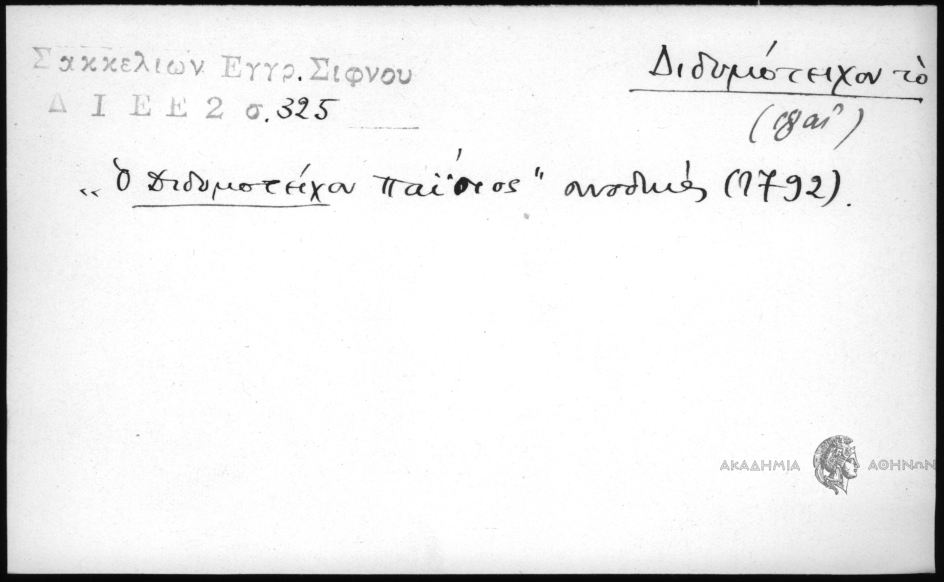 Σακκελιων Εγγρ. Σιφνου
Δ Ι Ε Ε 2 σ. 325
Διδυμότειχον τὸ
„ Ὁ Διδυμοτείχου Παΐσιος" συνοδικός (1792).
ΑΚΑΔΗΜΙΑ ΑΘΗΝΩΝ